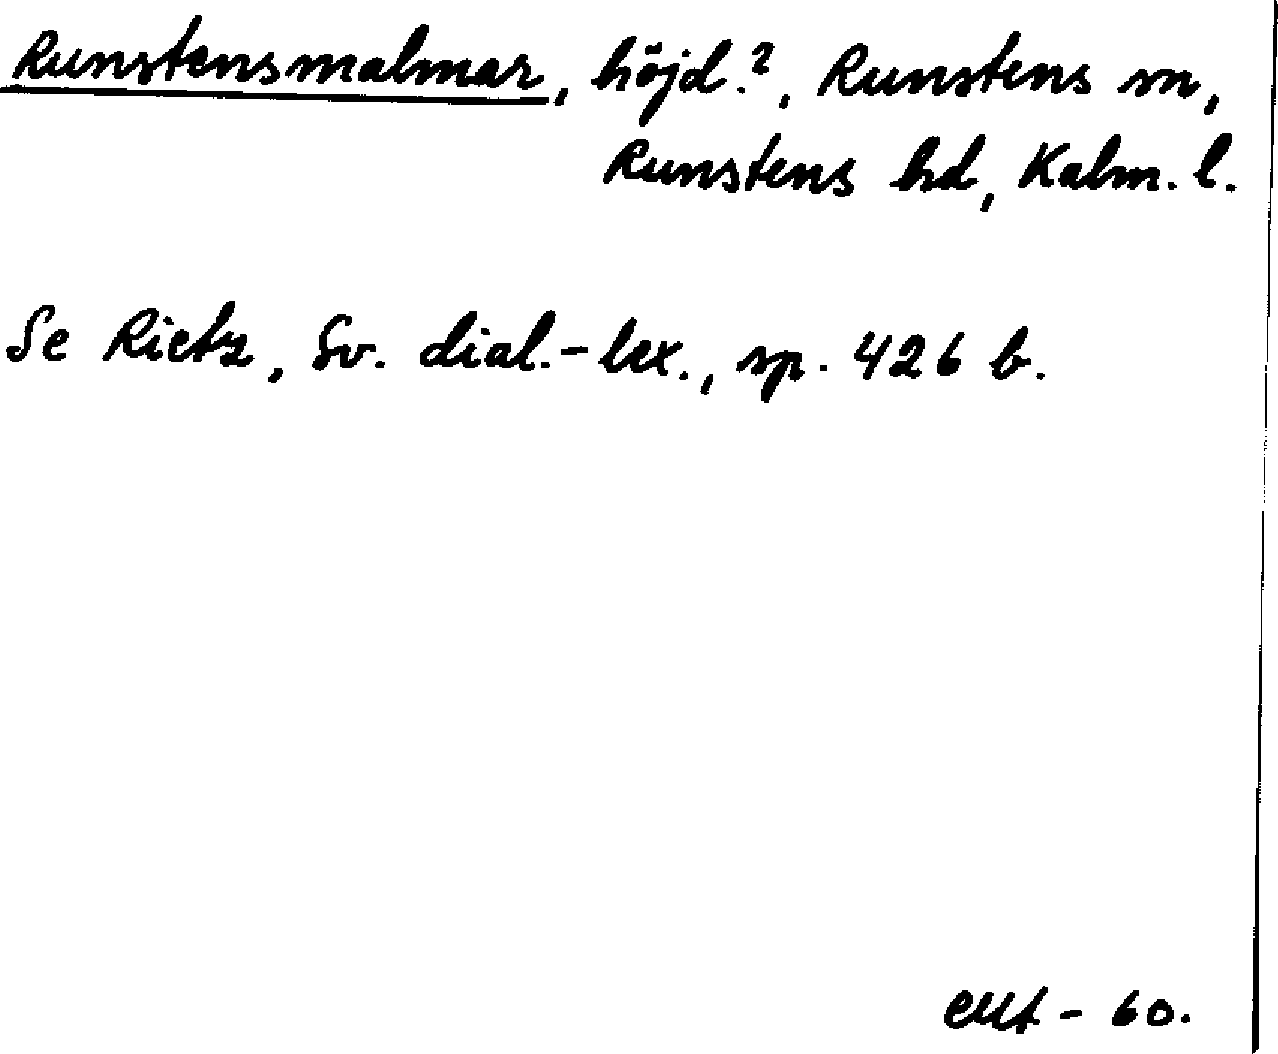 Runstensmalmar, höjd?, Runstens sn,
Runstens hd, Kalm. l.
Se Rietz, Sv. dial.-lex., sp. 426 b.
- 60.